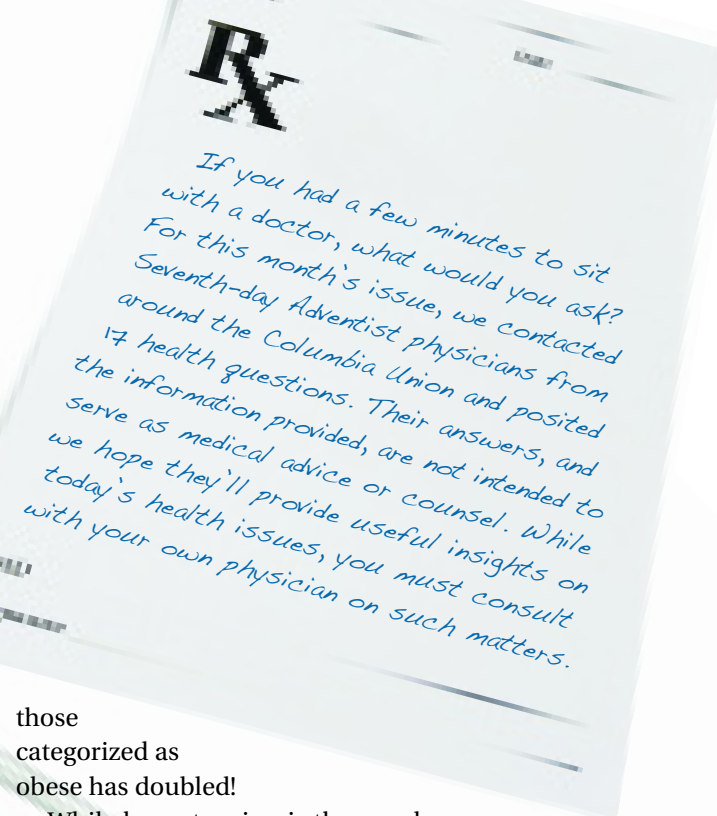 Rx
If you had a few minutes to sit
with a doctor, what would you ask?
For this month's issue, we contacted
Seventh-day Adventist physicians from
around the Columbia Union and posited
17 health questions. Their answers, and
the information provided, are not intended to
serve as medical advice or counsel. While
we hope they'll provide useful insights on
today's health issues, you must consult
with your own physician on such matters.
those
categorized as
obese has doubled!